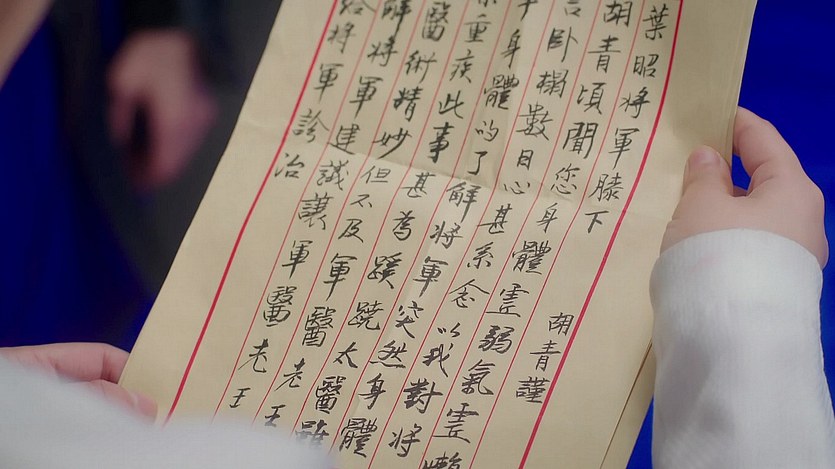 葉昭將軍膝下 胡青謹
胡青頃聞您身體虛弱氣虛懶
言卧榻數日心甚系念以我對將
身體的了解將軍突然身體
重疾此事甚為蹊蹺太醫雖
醫術精妙但不及軍醫老王
解將軍建議讓軍醫老王
給將軍診治